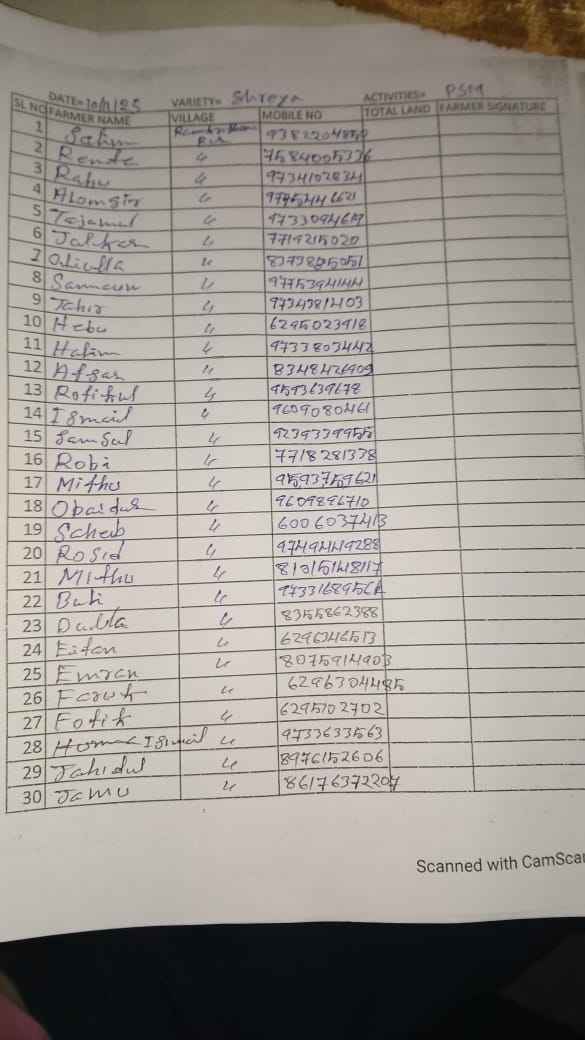 DATE= 10/1/25 VARIETY= Shreya ACTIVITIES= PSM
SL NO FARMER NAME VILLAGE MOBILE NO TOTAL LAND FARMER SIGNATURE
1 Sahin
2 Rende 〃 7584005336
3 Rahu 〃 9734102834
4 Alomgir 〃
5 Tojamul 〃
6 〃 7719215020
7 〃
8 〃 9775394144
9 Tahir 〃
10 Hebu 〃 6295023918
11 Halim 〃 9733803442
12 Afsar 〃 8348426909
13 Rofikul 〃 9593639678
14 Ismail 〃 9609080461
15 Samsul 〃 9239339955
16 Robi 〃 7718281338
17 Mithu 〃 9593759621
18 Obaidur 〃 9609896710
19 Scheb 〃 6006037413
20 Rosid 〃 9749449288
21 Mithu 〃 81015148117
22 〃
23 〃 8355862388
24 〃 6296346513
25 Emran 〃 8075914903
26 Faruk 〃 6296304485
27 Fotik 〃 6295102702
28 Ismail 〃 9733633563
29 Jahidul 〃 8976152606
30 Jamu 〃 86176372207
Scanned with CamScan